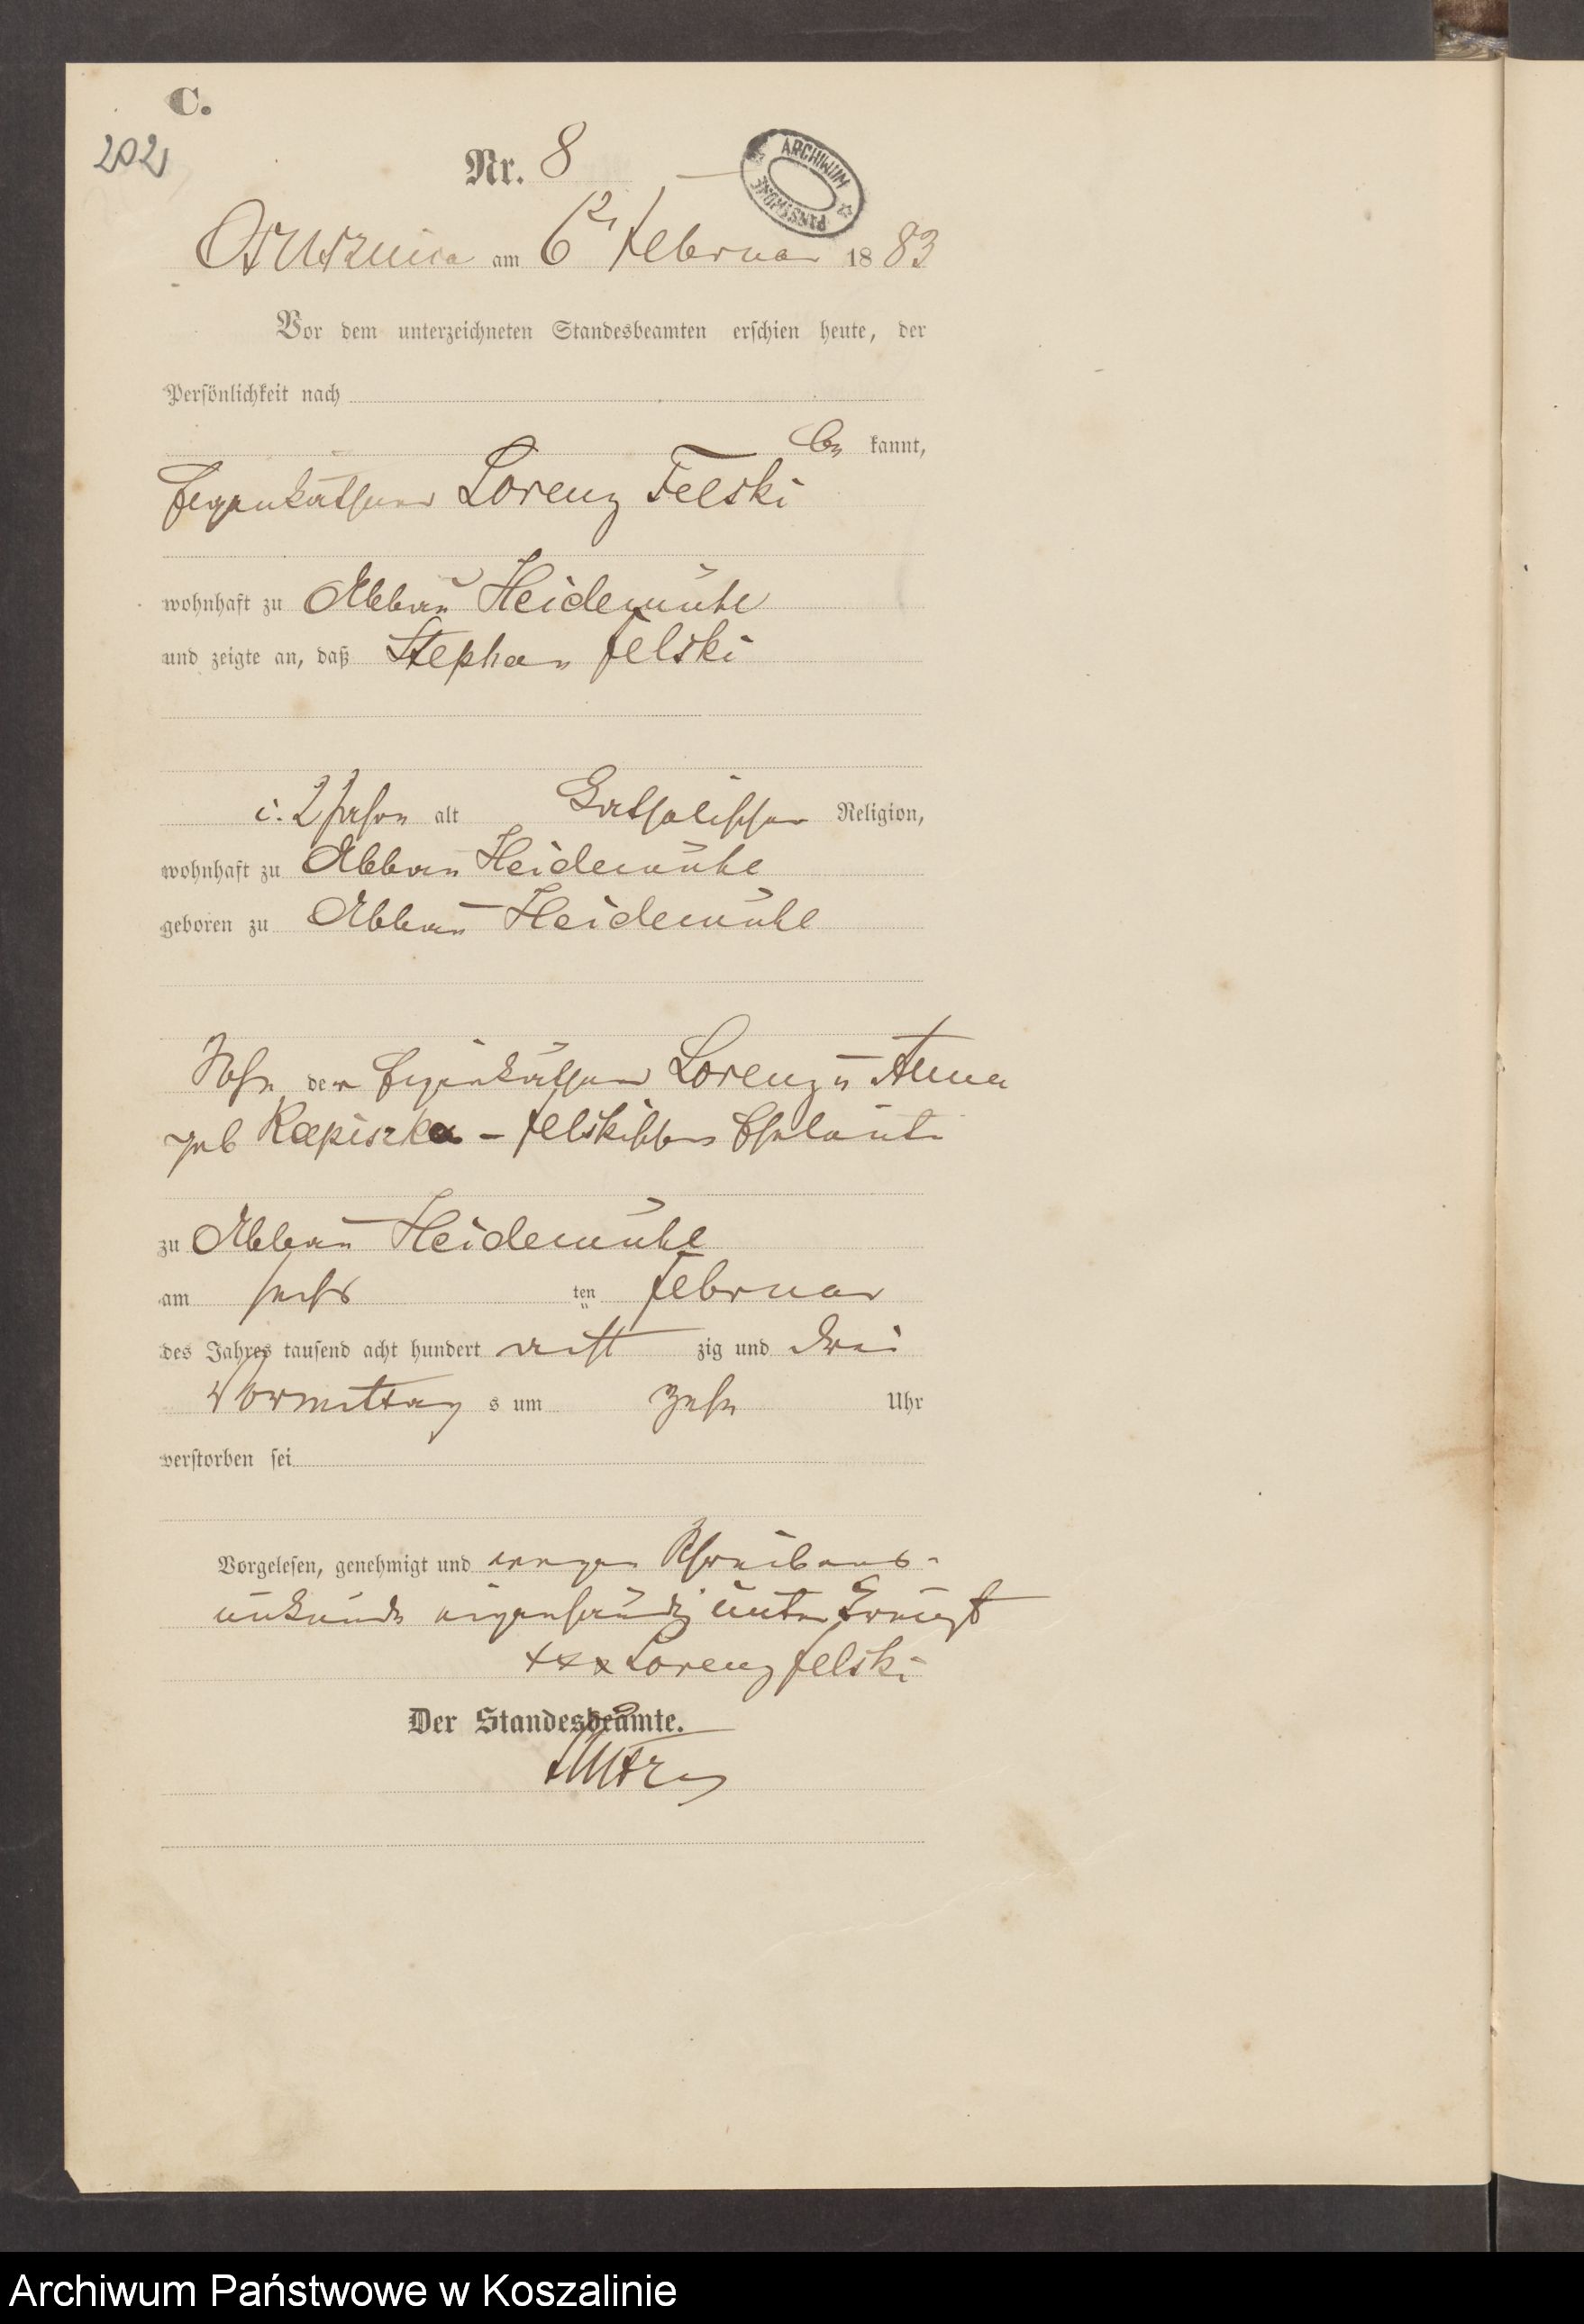 C.
202
Nr. 8
ARCHIWUM PAŃSTWOWE
am 6 Februar 1883
Vor dem unterzeichneten Standesbeamten erschien heute, der
Persönlichkeit nach
be kannt,
Eigenkäthner Lorenz Felski
wohnhaft zu Abbau Heidemühl
und zeigte an, daß Stephan Felski
i. 2 Jahre alt Katholischer Religion,
wohnhaft zu Abbau Heidemühl
geboren zu Abbau Heidemühl
Sohn der Eigenkäthner Lorenz u Anna
geb Rapiszka - Felskischen Eheleute
zu Abbau Heidemühl
am sechs ten Februar
des Jahres tausend acht hundert acht zig und drei
Vormittag s um zehn Uhr
verstorben sei
Vorgelesen, genehmigt und wegen Schreibens-
unkunde eigenhändig unterkreuzt
+++ Lorenz Felski
Der Standesbeamte.
Archiwum Państwowe w Koszalinie